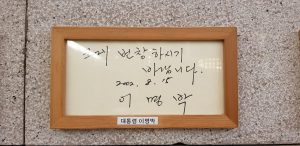 크게 번창하시기
바랍니다.
2002. 8. 15
이 명 박
대통령 이명박